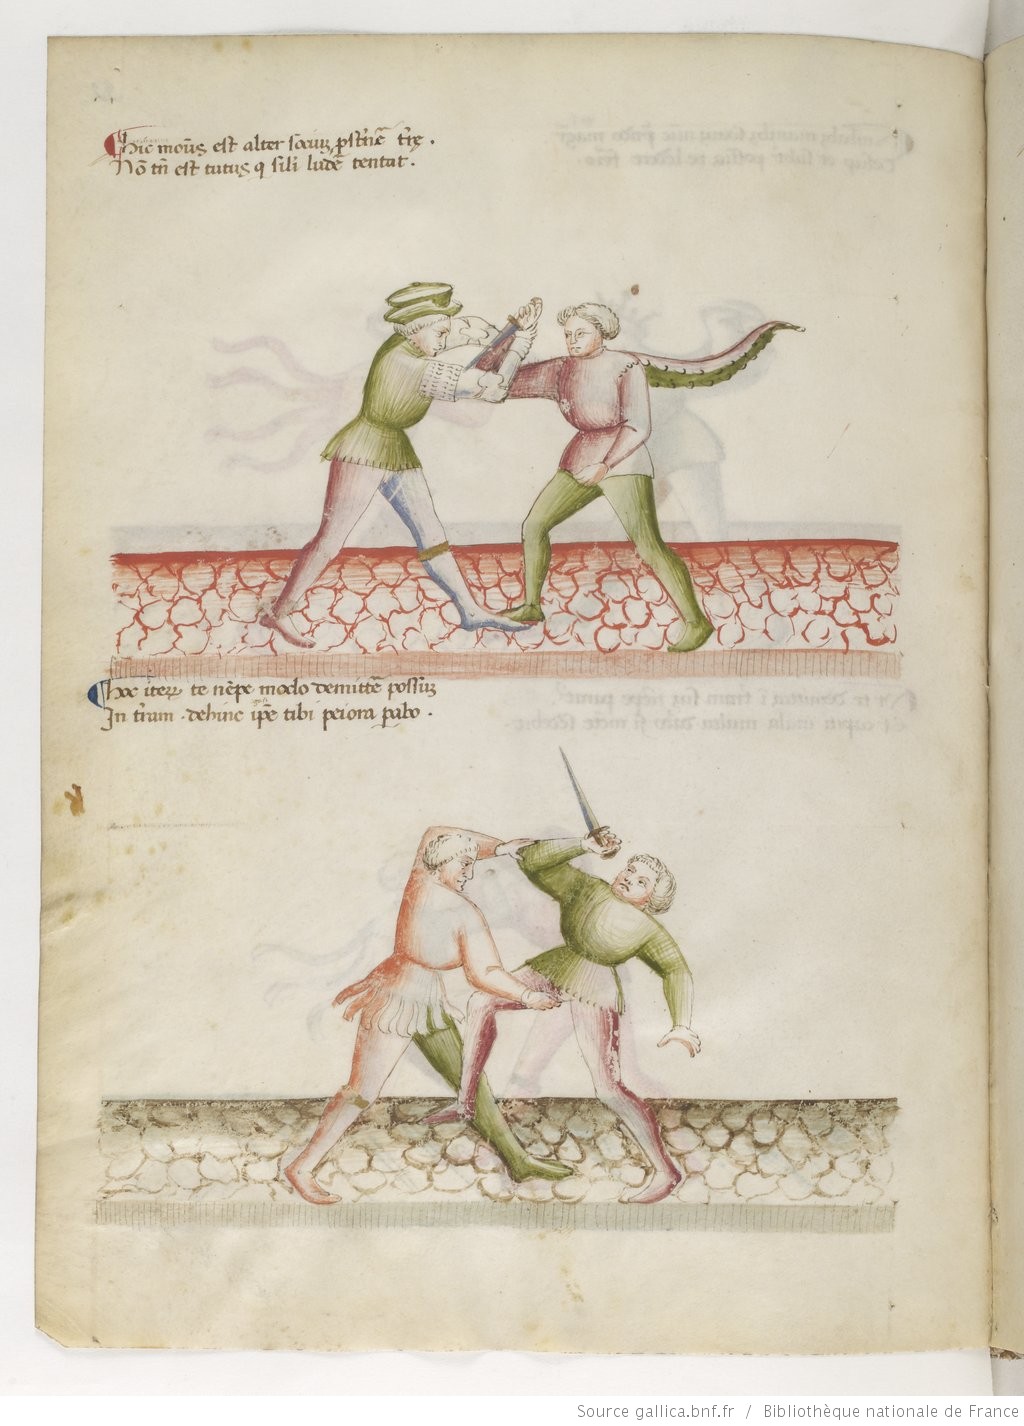 Hic moďus est alter socius, ꝓstˀnē̃ tˀrę .
Nō tñ est tutus q sili ludē tentat .
Hoc iteꝝ te nēpe modo demittē possum̃
In tˀram . dehinc ip̃e tibi peiora ꝑabo .
Source gallica.bnf.fr / Bibliothèque nationale de France